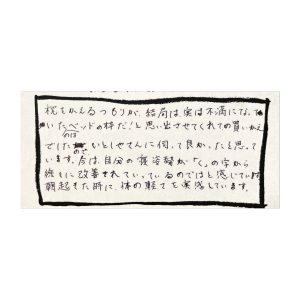 枕をかえるつもりが、結局は、実は不満になって
いたのはベッドの枠だ！と思い出させてくれての買いかえ
でしたので いとしやさんに伺って良かったと思って
います。今は、自分の横姿勢が「く」の字から
徐々に改善されていっているのではと感じています
朝起きた時に、体の軽さを実感しています。